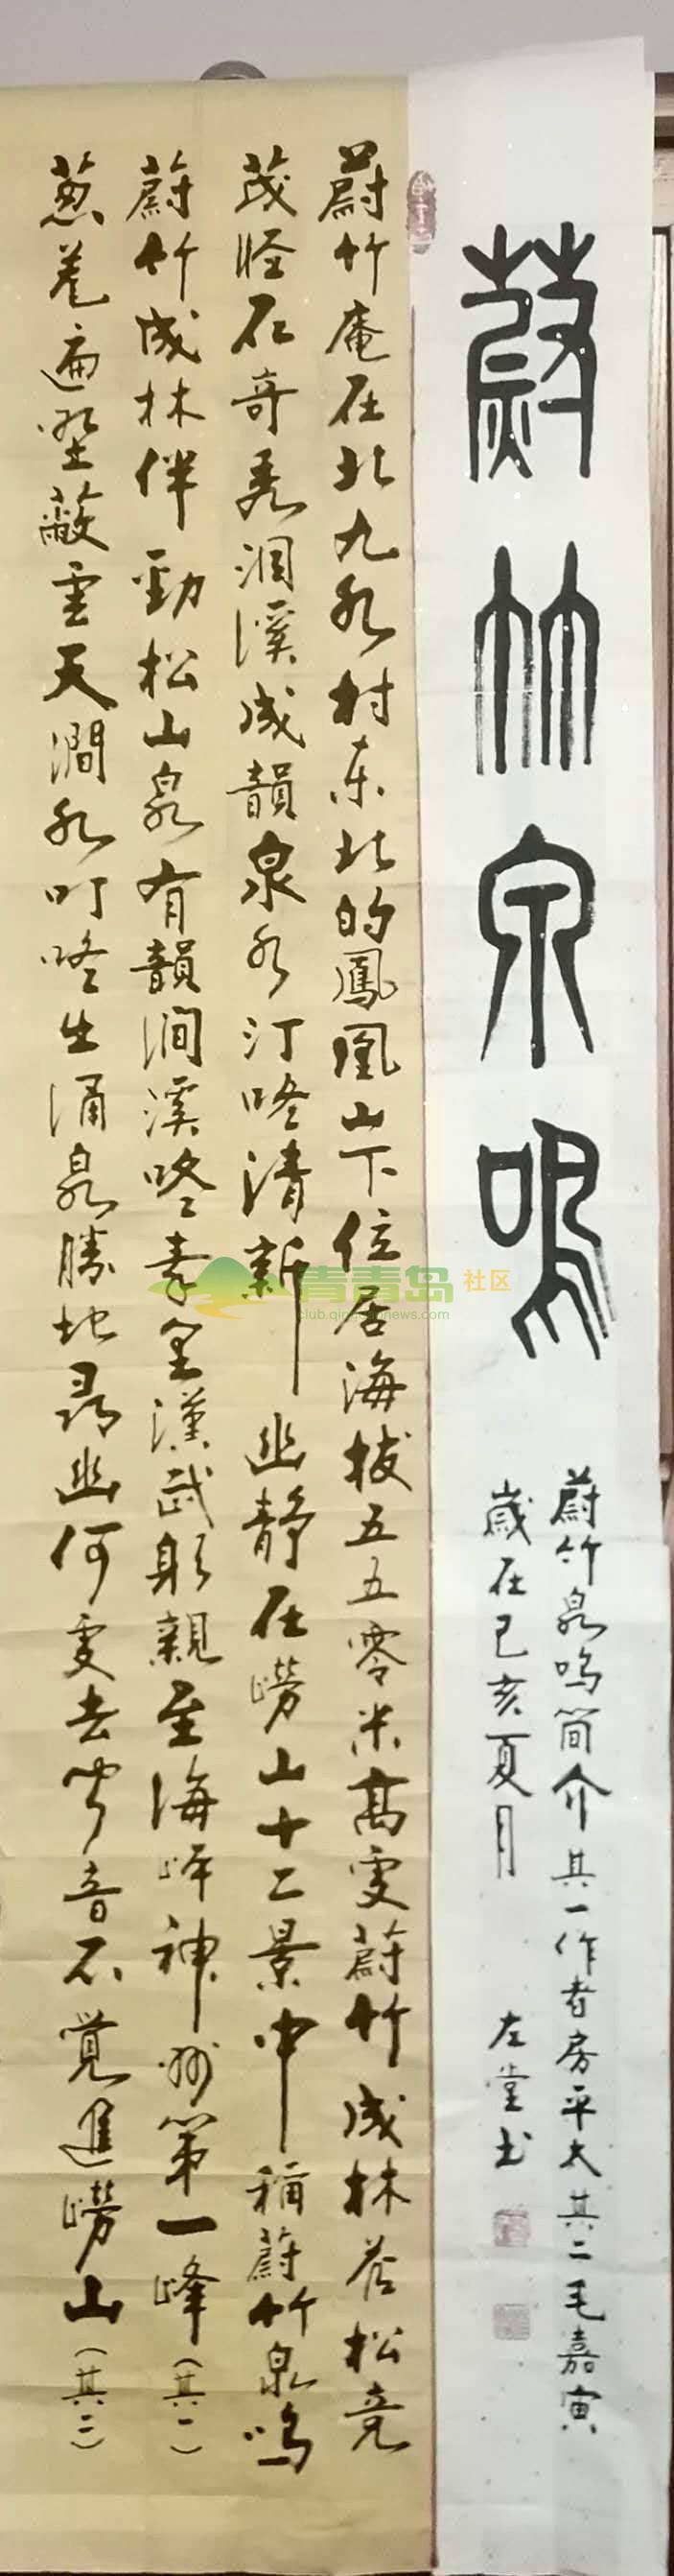 蔚竹泉鳴
蔚竹泉鸣简介其一作者房平大其二毛嘉寅
歲在己亥夏月 左堂书
蔚竹庵在北九水村东北的鳳凰山下位居海拔五五零米高处蔚竹成林苍松竞
茂怪石奇秀洄溪成韻泉水汀咚清新幽静在崂山十二景中稱蔚竹泉鸣
蔚竹成林伴勁松山泉有韻涧溪咚秦皇漢武躬親至海峰神州第一峰（其一）
葱茏遍壑蔽雲天澗水叮咚生涌泉勝地尋幽何处去聞音不覚進崂山（其二）
青青岛社区
club.qingdaonews.com